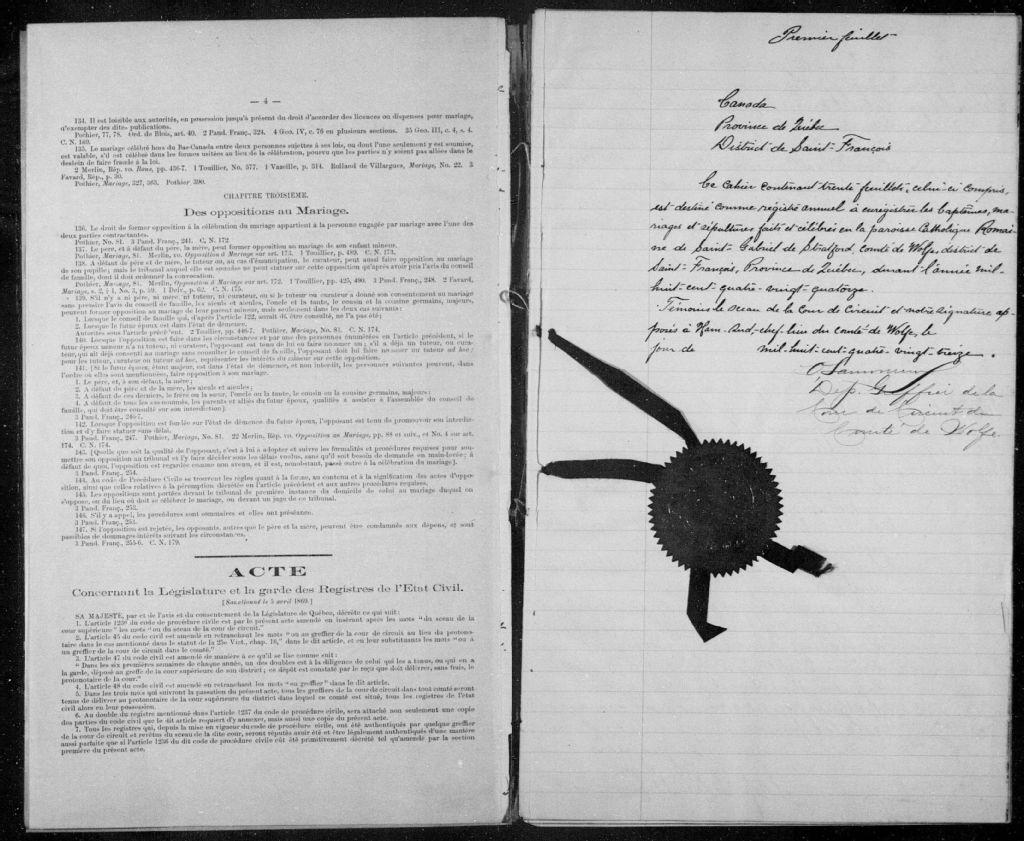 — 4 —
134. Il est loisible aux autorités, en possession jusqu'à présent du droit d'accorder des licences ou dispenses pour mariage,
d'exempter des dites publications.
Pothier, 77, 78. Ord. de Blois, art. 40. 2 Pand. Franç., 324. 4 Geo. IV, c. 76 en plusieurs sections. 35 Geo. III, c. 4, s. 4.
C. N. 169.
135. Le mariage célébré hors du Bas-Canada entre deux personnes sujettes à ses lois, ou dont l'une seulement y est soumise,
est valable, s'il est célébré dans les formes usitées au lieu de la célébration, pourvu que les parties n'y soient pas allées dans le
dessein de faire fraude à la loi.
2 Merlin, Rép. vo. Bans, pp. 456-7. 1 Toullier, No. 577. 1 Vazeille, p. 514. Rolland de Villargues, Mariage, No. 22. 3
Favard, Rép., p. 30.
Pothier, Mariage, 327, 363. Pothier 390.
CHAPITRE TROISIÈME.
Des oppositions au Mariage.
136. Le droit de former opposition à la célébration du mariage appartient à la personne engagée par mariage avec l'une des
deux parties contractantes.
Pothier, No. 81. 3 Pand. Franç., 241. C. N. 172
137. Le père, et à défaut du père, la mère, peut former opposition au mariage de son enfant mineur.
Pothier, Mariage, 81. Merlin, vo. Opposition à Mariage sur art. 173. 1 Toullier, p. 489. C. N. 173.
138. A défaut de père et de mère, le tuteur ou, au cas d'émancipation, le curateur, peut aussi faire opposition au mariage
de son pupille; mais le tribunal auquel elle est soumise ne peut statuer sur cette opposition qu'après avoir pris l'avis du conseil
de famille, dont il doit ordonner la convocation.
Pothier, Mariage, 81. Merlin, Opposition à Mariage sur art. 172. 1 Toullier, pp. 425, 490. 3 Pand. Franç., 248. 2 Favard,
Mariage, s. 2, § 1, No. 3, p. 59. 1 Delv., p. 62; C. N. 175.
139. S'il n'y a ni père, ni mère, ni tuteur, ni curateur, ou si le tuteur ou curateur a donné son consentement au mariage
sans prendre l'avis du conseil de famille, les aïeuls et aïeules, l'oncle et la tante, le cousin et la cousine germains, majeurs,
peuvent former opposition au mariage de leur parent mineur, mais seulement dans les deux cas suivants:
1. Lorsque le conseil de famille qui, d'après l'article 122, aurait dû être consulté, ne l'a pas été;
2. Lorsque le futur époux est dans l'état de démence.
Autorités sous l'article précédent. 2 Toullier, pp. 446-7. Pothier, Mariage, No. 81. C. N. 174.
140. Lorsque l'opposition est faite dans les circonstances et par une des personnes énumérées en l'article précédent, si le
futur époux mineur n'a ni tuteur, ni curateur, l'opposant est tenu de lui en faire nommer un; s'il a déjà un tuteur, ou curateur,
qui ait déjà consenti au mariage sans consulter le conseil de famille, l'opposant doit lui faire nommer un tuteur ad hoc;
pour les tuteur, curateur ou tuteur ad hoc, représenter les intérêts du mineur sur cette opposition.
141. [Si le futur époux, étant majeur, est dans l'état de démence, et non interdit, les personnes suivantes peuvent, dans
l'ordre où elles sont mentionnées, faire opposition à son mariage.
1. Le père, et, à son défaut, la mère;
2. A défaut de père et de la mère, les aïeuls et aïeules;
3. A défaut de ces derniers, le frère ou la sœur, l'oncle ou la tante, le cousin ou la cousine germains, majeurs;
4. A défaut de tous les susnommés, les parents et alliés du futur époux, qualifiés à assister à l'assemblée du conseil de
famille, qui doit être consulté sur son interdiction]:
3 Pand. Franç., 246-7.
142. Lorsque l'opposition est fondée sur l'état de démence du futur époux, l'opposant est tenu de promouvoir son interdiction
et d'y faire statuer sans délai.
3 Pand. Franç., 247. Pothier, Mariage, No. 81. 22 Merlin, Rép. vo. Opposition au Mariage, pp. 88 et suiv., et No. 4 sur art.
174. C. N. 174.
143. [Quelle que soit la qualité de l'opposant, c'est à lui à adopter et suivre les formalités et procédures requises pour soumettre
son opposition au tribunal et l'y faire décider dans les délais voulus, sans qu'il soit besoin de demande en main-levée; à
défaut de quoi, l'opposition est regardée comme non avenu, et il est, nonobstant, passé outre à la célébration du mariage].
3 Pand. Franç., 254.
144. Au code de Procédure Civile se trouvent les règles quant à la forme, au contenu et à la signification des actes d'opposition,
ainsi que celles relatives à la péremption décrétée en l'article précédent et aux autres procédures requises.
145. Les oppositions sont portées devant le tribunal de première instance du domicile de celui au mariage duquel on
s'oppose, ou du lieu où doit se célébrer le mariage, ou devant un juge de ce tribunal.
3 Pand. Franç., 253.
146. S'il y a appel, les procédures sont sommaires et elles ont préséance.
3 Pand. Franç., 253.
147. Si l'opposition est rejetée, les opposants, autres que le père et la mère, peuvent être condamnés aux dépens, et sont
passibles de dommages-intérêts suivant les circonstances.
3 Pand. Franç., 255-6. C. N. 179.
ACTE
Concernant la Législature et la garde des Registres de l'Etat Civil.
[Sanctionné le 5 avril 1869.]
SA MAJESTÉ, par et de l'avis et du consentement de la Législature de Québec, décrète ce qui suit:
1. L'article 1236 du code de procédure civile est par le présent acte amendé en insérant après les mots "du sceau de la
cour supérieure" les mots "ou du sceau de la cour de circuit."
2. L'article 45 du code civil est amendé en retranchant les mots "ou au greffier de la cour de circuit au lieu du protonotaire
dans le cas mentionné dans le statut de la 25e Vict., chap. 16," dans le dit article, et en leur substituant les mots "ou à
un greffier de la cour de circuit dans le comté."
3. L'article 47 du code civil est amendé de manière à ce qu'il se lise comme suit:
"Dans les six premières semaines de chaque année, un des doubles est à la diligence de celui qui les a tenus, ou qui en a
la garde, déposé au greffe de la cour supérieure de son district; ce dépôt est constaté par le reçu que doit délivrer, sans frais, le
protonotaire de la cour."
4. L'article 48 du code civil est amendé en retranchant les mots "ou greffier" dans le dit article.
5. Dans les trois mois qui suivront la passation du présent acte, tous les greffiers de la cour de circuit dans tout comté seront
tenus de délivrer au protonotaire de la cour supérieure du district dans lequel ce comté est situé, tous les registres de l'état
civil alors en leur possession.
6. Au double du registre mentionné dans l'article 1237 du code de procédure civile, sera attaché non seulement une copie
des parties du code civil que le dit article requiert d'y annexer, mais aussi une copie du présent acte.
7. Tous les registres qui, depuis la mise en vigueur du code de procédure civile, ont été authentiqués par quelque greffier
de la cour de circuit et revêtus du sceau de la dite cour, seront réputés avoir été et être légalement authentiqués d'une manière
aussi parfaite que si l'article 1236 du dit code de procédure civile eût été primitivement décrété tel qu'amendé par la section
première du présent acte.
Premier feuillet
Canada
Province de Québec
District de Saint-François
Ce Cahier contenant trente feuillets, celui-ci compris,
est destiné comme registre annuel à enregistrer les baptêmes, ma-
riages et sépultures faits et célébrés en la paroisse Catholique Romai-
ne de Saint-Gabriel de Stratford, comté de Wolfe, district de
Saint-François, Province de Québec, durant l'année mil-
huit-cent-quatre-vingt-quatorze.
Témoins le sceau de la Cour de Circuit et notre signature ap-
posés à Ham-Sud, chef-lieu du comté de Wolfe, le
jour de mil-huit-cent-quatre-vingt-treize.
Dép. Greffier de la
Cour de Circuit du
Comté de Wolfe.